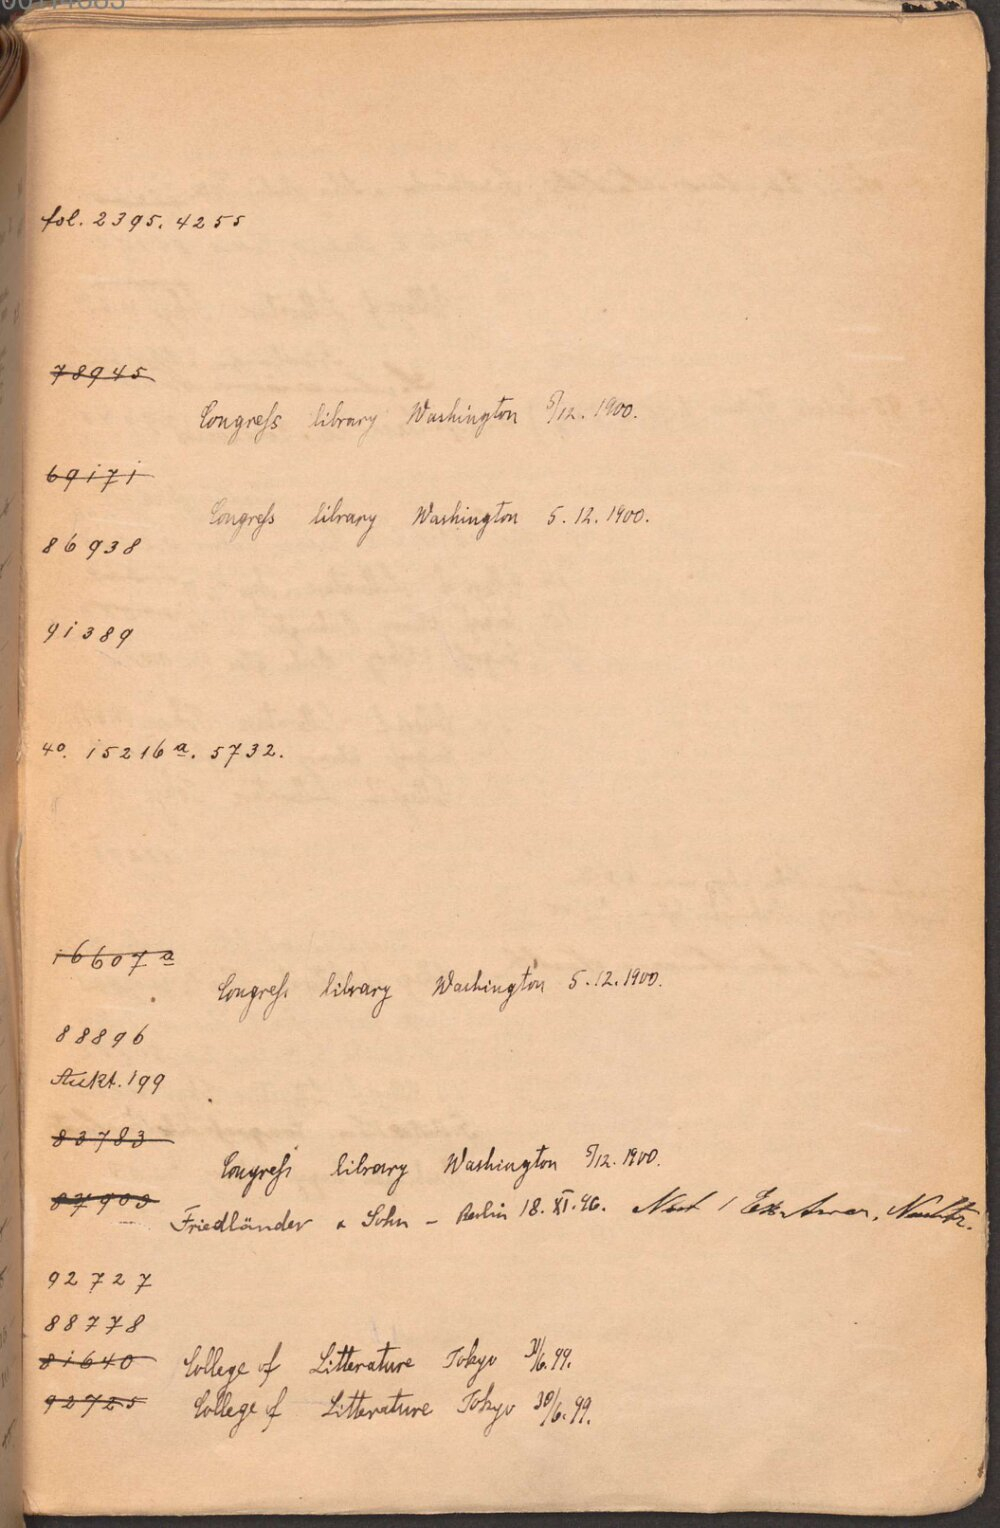 fol. 2395. 4255
78945
Congreſs library Washington 5/12. 1900.
69171
Congreſs library Washington 5. 12. 1900.
86938
91389
40. 15216a. 5732.
16607a
Congreſs library Washington 5. 12. 1900.
88896
Aukt. 199
83783
Congreſs library Washington 5/12. 1900.
87903
Friedländer & Sohn - Berlin 18. XI. 96.
92727
88778
81640 College of Litterature Tokyo /6. 99.
92725 College of Litterature Tokyo 30/6. 99.